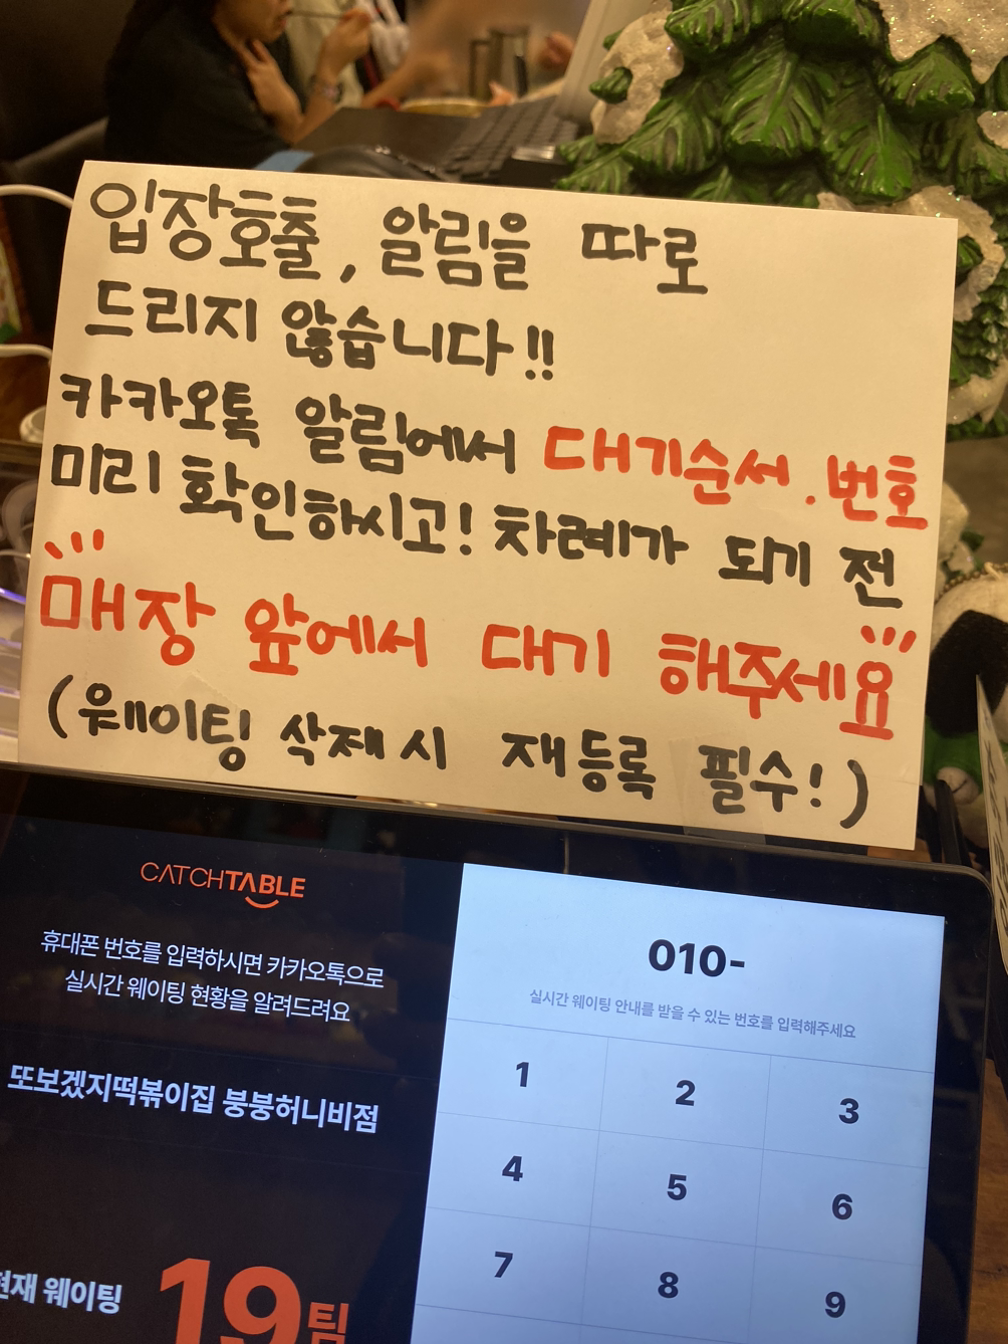 입장호출, 알림을 따로
드리지 않습니다!!
카카오톡 알림에서 대기순서.번호
미리 확인하시고! 차례가 되기 전
매장 앞에서 대기 해주세요
(웨이팅 삭제시 재등록 필수!)
CATCHTABLE
휴대폰 번호를 입력하시면 카카오톡으로
실시간 웨이팅 현황을 알려드려요
또보겠지떡볶이집 붕붕허니비점
현재 웨이팅 19팀
010-
실시간 웨이팅 안내를 받을 수 있는 번호를 입력해주세요
1 2 3
4 5 6
7 8 9